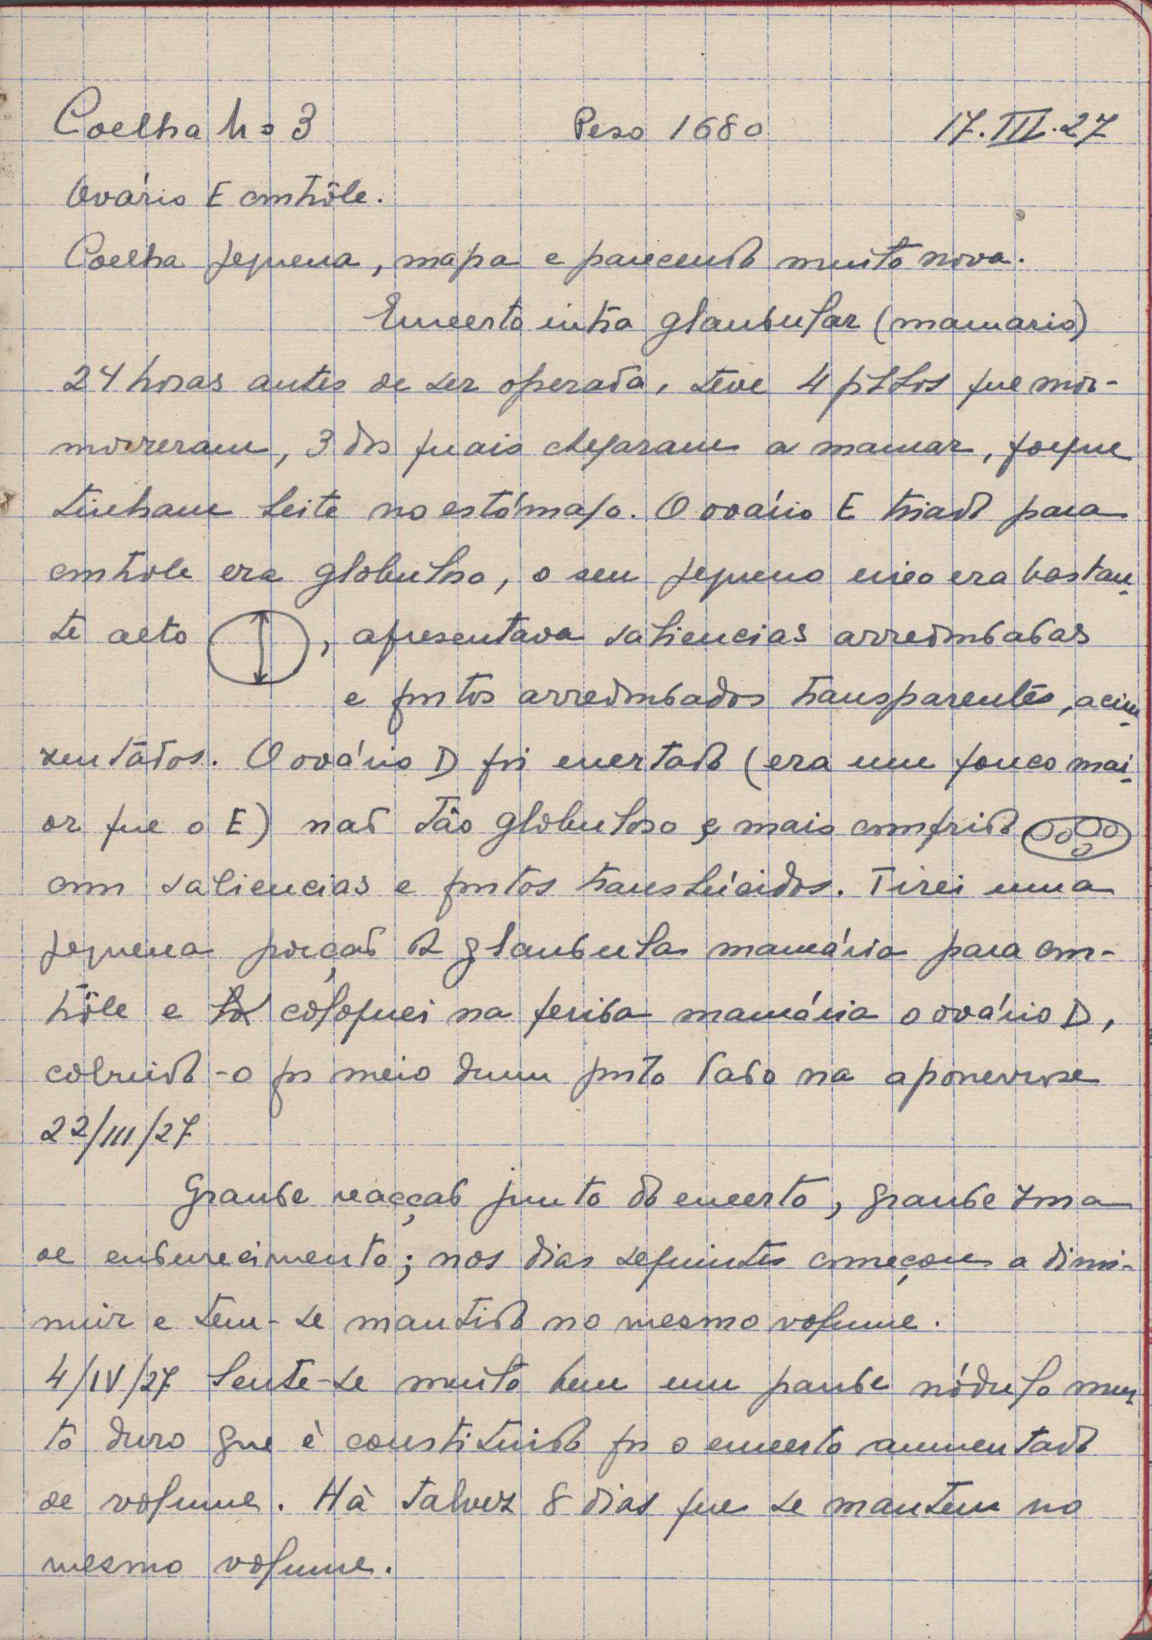 Coelha nº 3 Peso 1680 17.III.27
Ovário E contrôle.
Coelha pequena, magra e parecendo muito nova.
Enxerto intra glandular (mamario)
24 horas antes de ser operada, teve 4 filhos que mor-
morreram, 3 dos quais chegaram a mamar, porque
tinham leite no estómago. O ovário E tirado para
controle era globuloso, o seu pequeno eixo era bastan-
te alto , apresentava saliencias arredondadas
e pontos arredondados transparentes, acin-
zentados. O ovário D foi enxertado (era um pouco mai-
or que o E) não tão globuloso e mais comprido
com saliencias e pontos translúcidos. Tirei uma
pequena porção de glandula mamária para con-
trôle e coloquei na ferida mamária o ovário D,
cobrindo-o por meio dum ponto dado na aponevrose
22/III/27
Grande reacção junto do enxerto, grande zona
de endurecimento; nos dias seguintes começou a dimi-
nuir e tem-se mantido no mesmo volume.
4/IV/27 Sente-se muito bem um grande nódulo mui-
to duro que è constituido por o enxerto aumentado
de volume. Hà talvez 8 dias que se mantem no
mesmo volume.